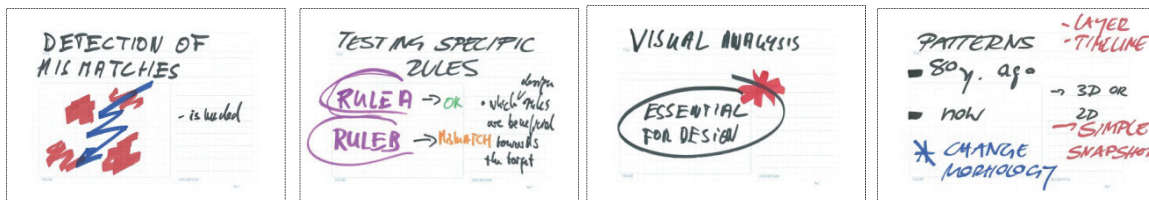 DETECTION OF
MISMATCHES
- is needed
TESTING SPECIFIC
RULES
RULE A → OK
RULE B → MISMATCH
design
• which rules
are beneficial
towards
the target
VISUAL ANALYSIS
ESSENTIAL
FOR DESIGN
PATTERNS
- LAYER
- TIMELINE
- 80 y. ago
- now
→ 3D OR
2D
→ SIMPLE
SNAPSHOT
* CHANGE
MORHOLOGY